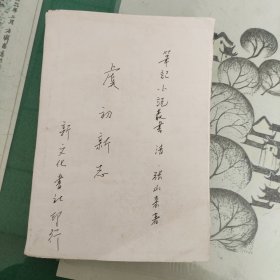 筆記小說叢書 清 張山來著
虞初新志
新文化書社印行